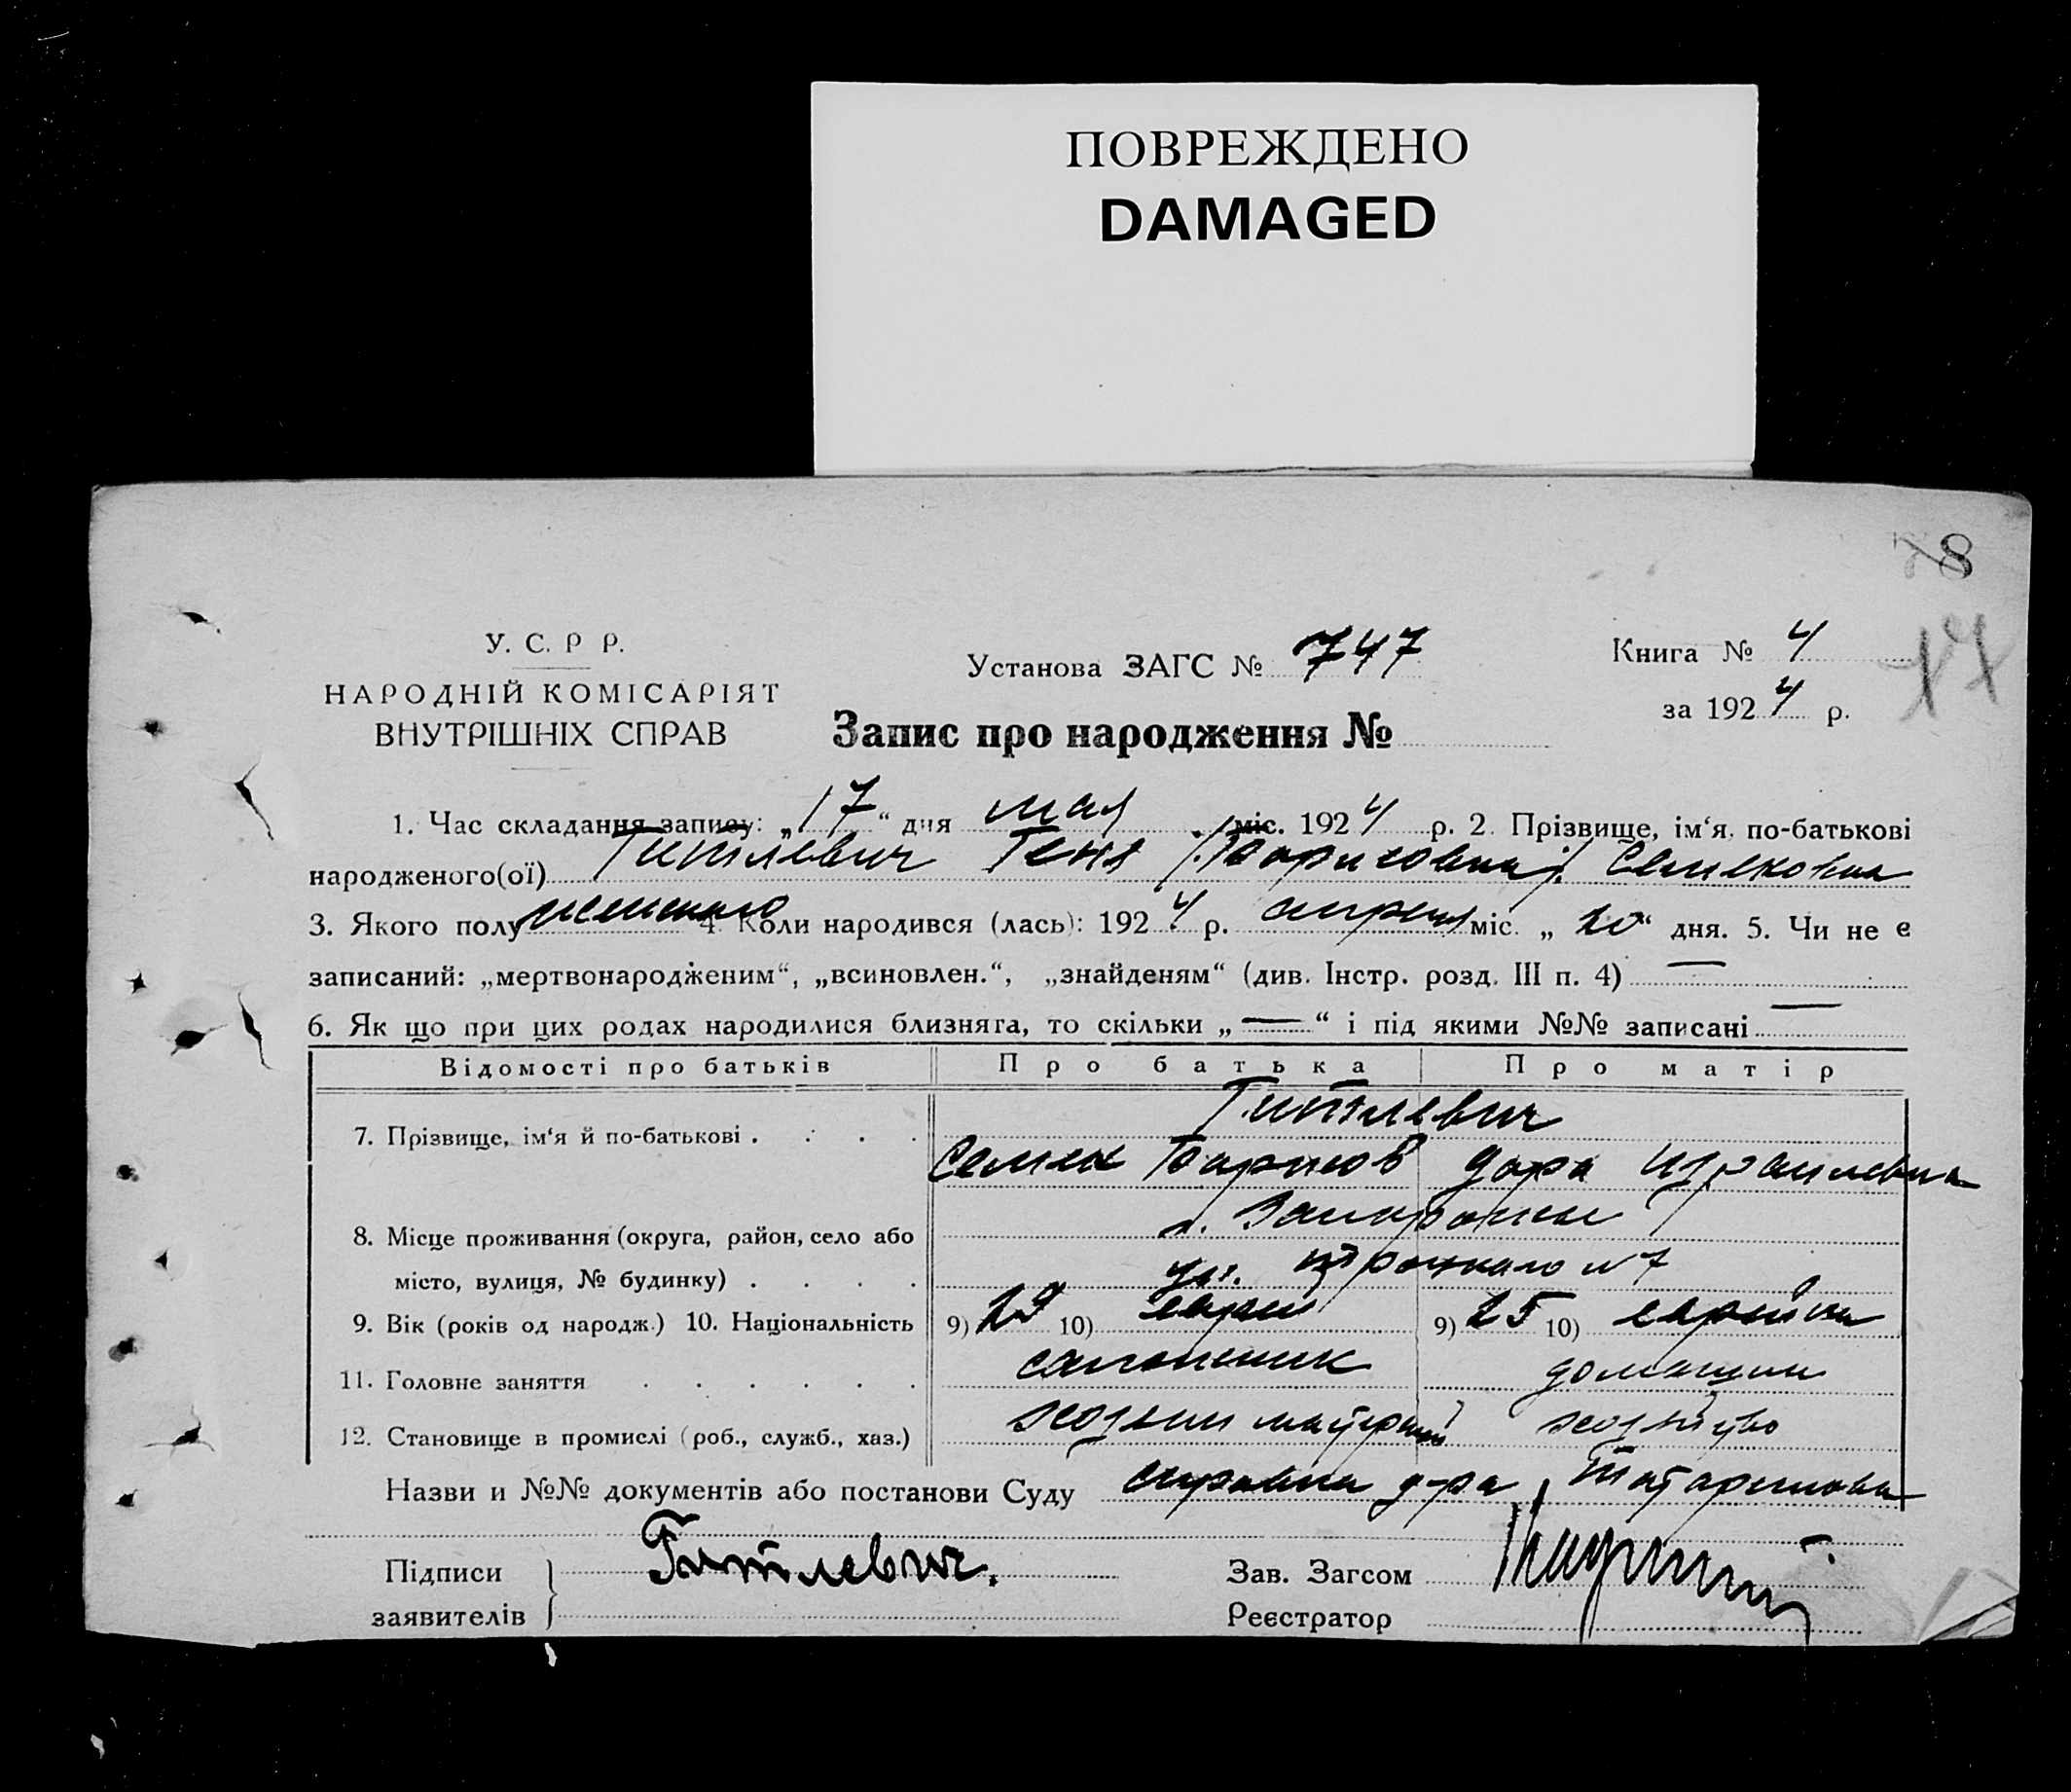 ПОВРЕЖДЕНО
DAMAGED
8
У. С. Р Р.
НАРОДНІЙ КОМІСАРІЯТ
ВНУТРІШНІХ СПРАВ
Установа ЗАГС № 747
Книга № 4
за 1924 р.
Запис про народження №
1. Час складання запису: „17“ дня мая міс. 1924 р. 2. Прізвище, ім‘я, по-батькові
народженого(ої) Гитлевич Геня (Борисовна) Семеновна
3. Якого полу женского 4. Коли народився (лась): 1924 р. апреля міс. „20“ дня. 5. Чи не є
записаний: „мертвонародженим“, „всиновлен.“, „знайденям“ (див. Інстр. розд. III п. 4) —
6. Як що при цих родах народилися близняга, то скільки „—“ і під якими №№ записані —
Відомості про батьків Про батька Про матір
7. Прізвище, ім‘я й по-батькові . . . . Гитлевич
Семен Борисов Дора Израилевна
8. Місце проживання (округа, район, село або г. Запорожье
місто, вулиця, № будинку) . . . . ул. Троцкого № 7
9. Вік (років од народж.) 10. Національність 9) 29 10) еврей 9) 25 10) еврейка
11. Головне заняття . . . . . . сапожник домашн
12. Становище в промислі (роб., служб., хаз.) хозяин
Назви и №№ документів або постанови Суду справка д-ра
Підписи
заявителів
Гитлевич.
Зав. Загсом
Реєстратор